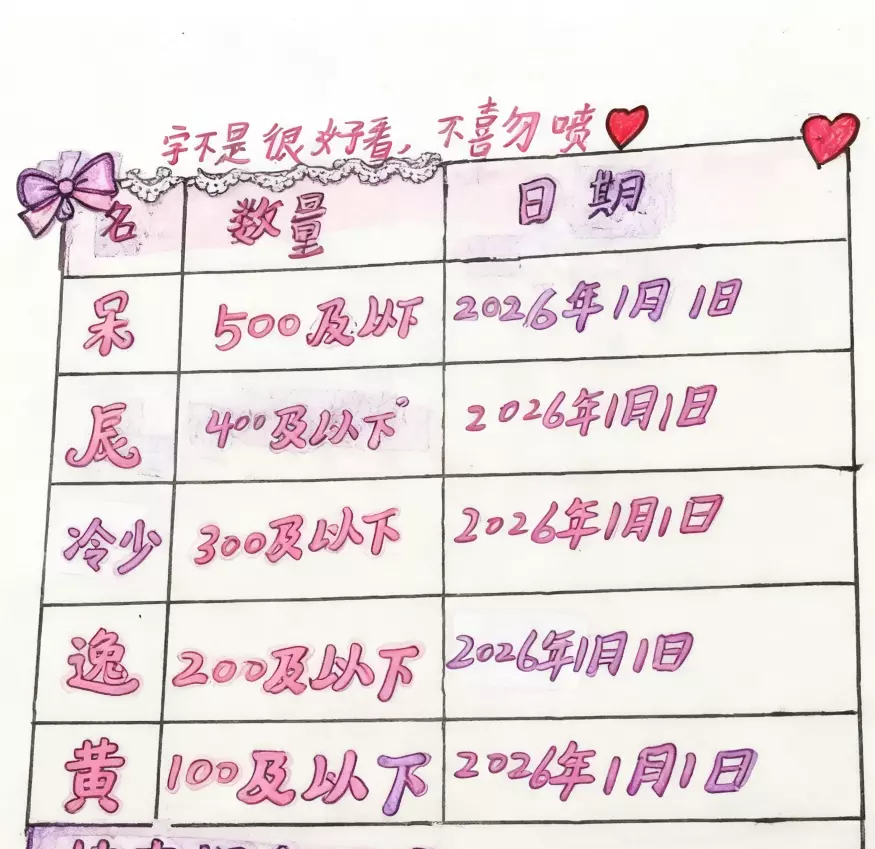 字不是很好看,不喜勿喷
名 数量 日期
呆 500及以下 2026年1月1日
辰 400及以下 2026年1月1日
冷少 300及以下 2026年1月1日
逸 200及以下 2026年1月1日
黄 100及以下 2026年1月1日